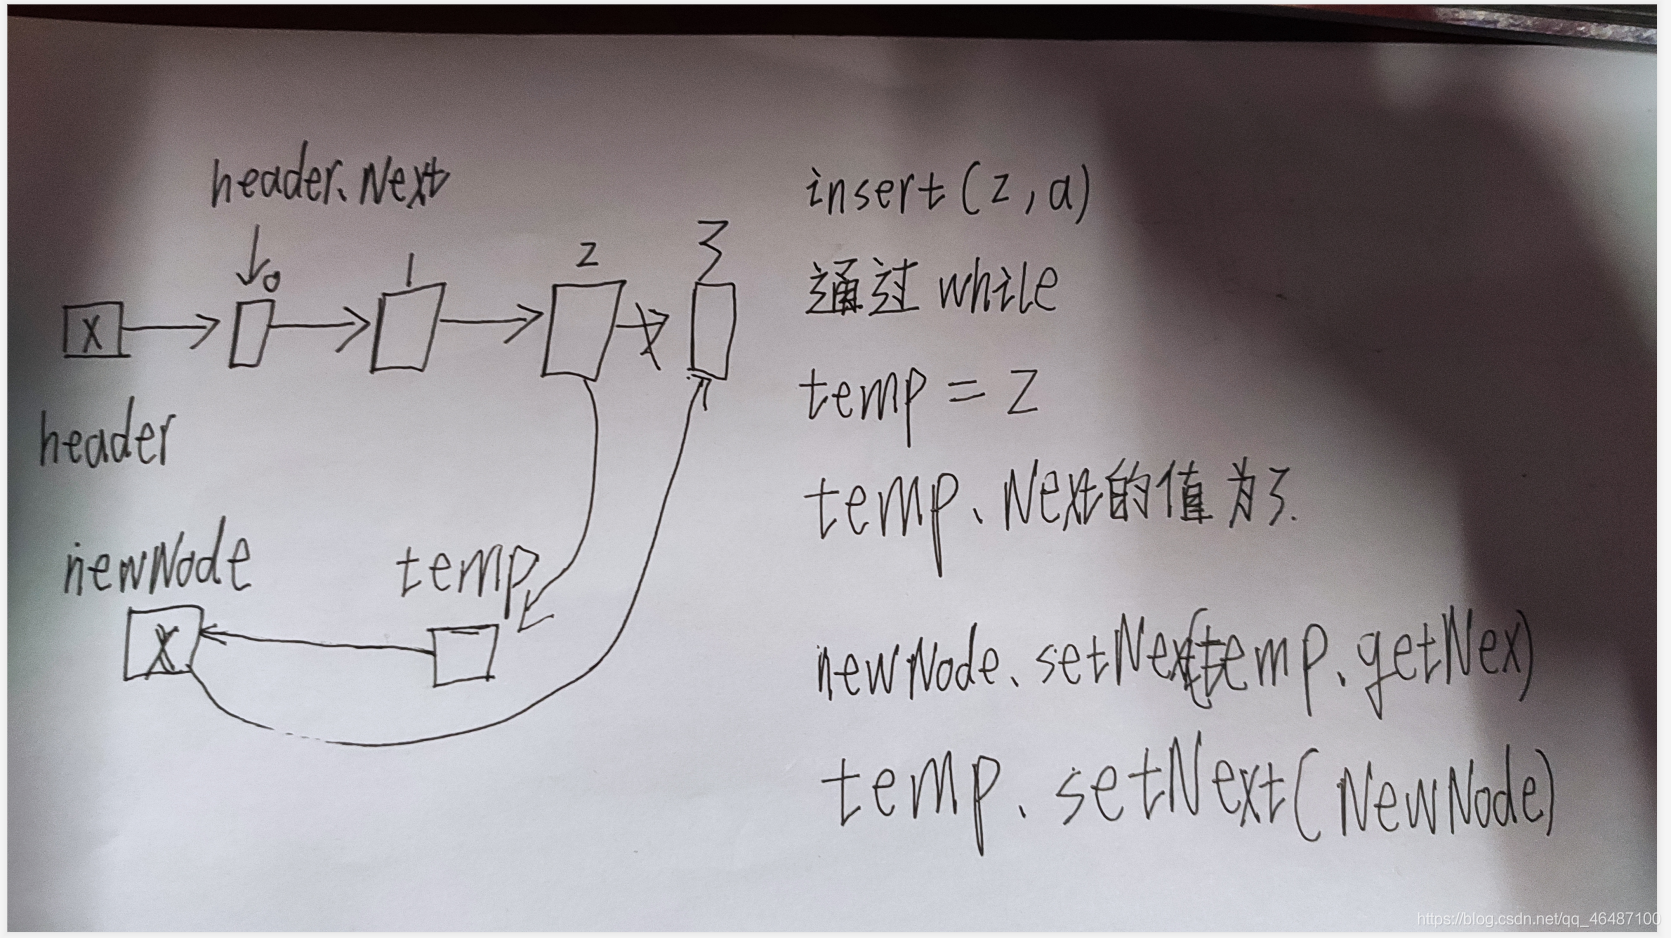 header.Next
0
1
2
3
X
header
newNode
X
temp
insert(2,a)
通过while
temp = 2
temp、Next的值为3.
newNode、setNex(temp、getNex)
temp、setNext(NewNode)
https://blog.csdn.net/qq_46487100